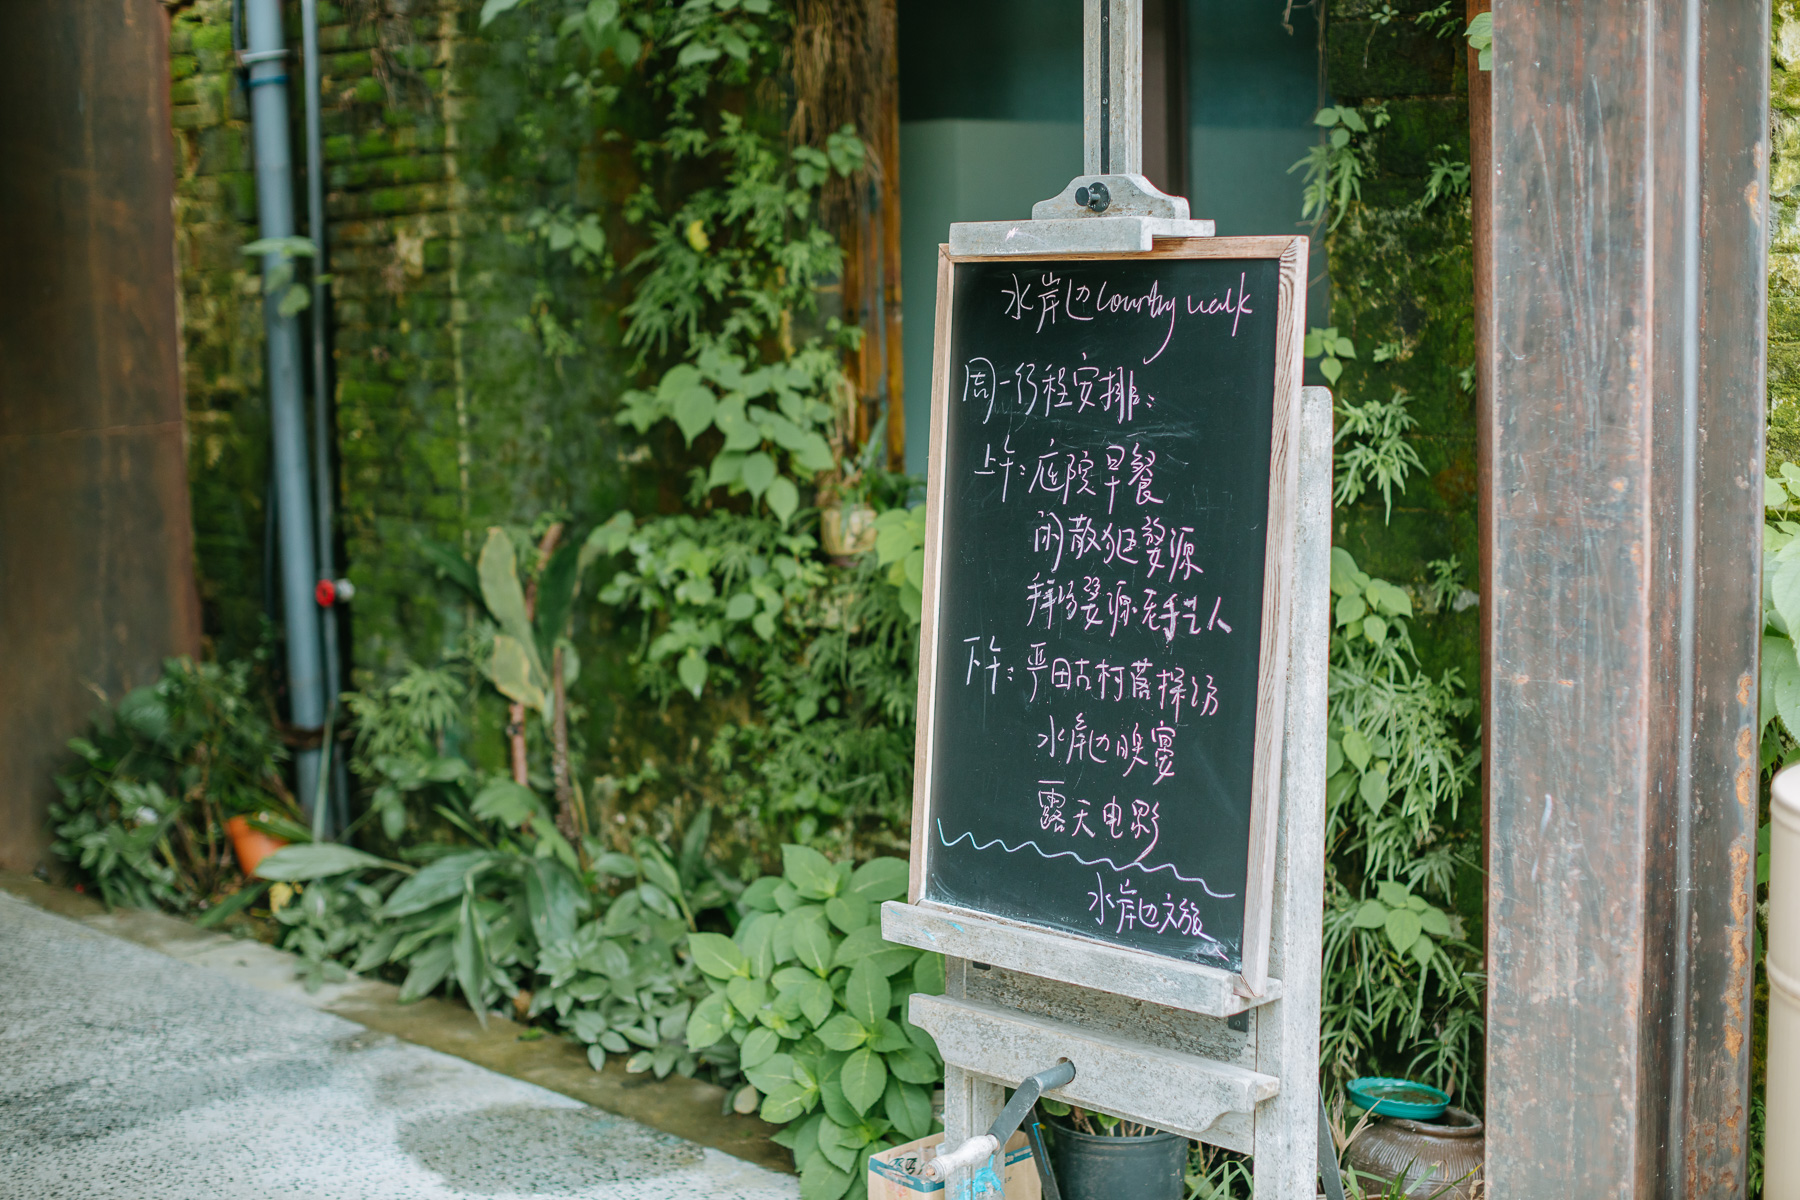 水岸边Country walk
周一行程安排：
上午：庭院早餐
闲散逛婺源
拜访婺源老手艺人
下午：严田古村落探访
水岸边晚宴
露天电影
水岸边文旅